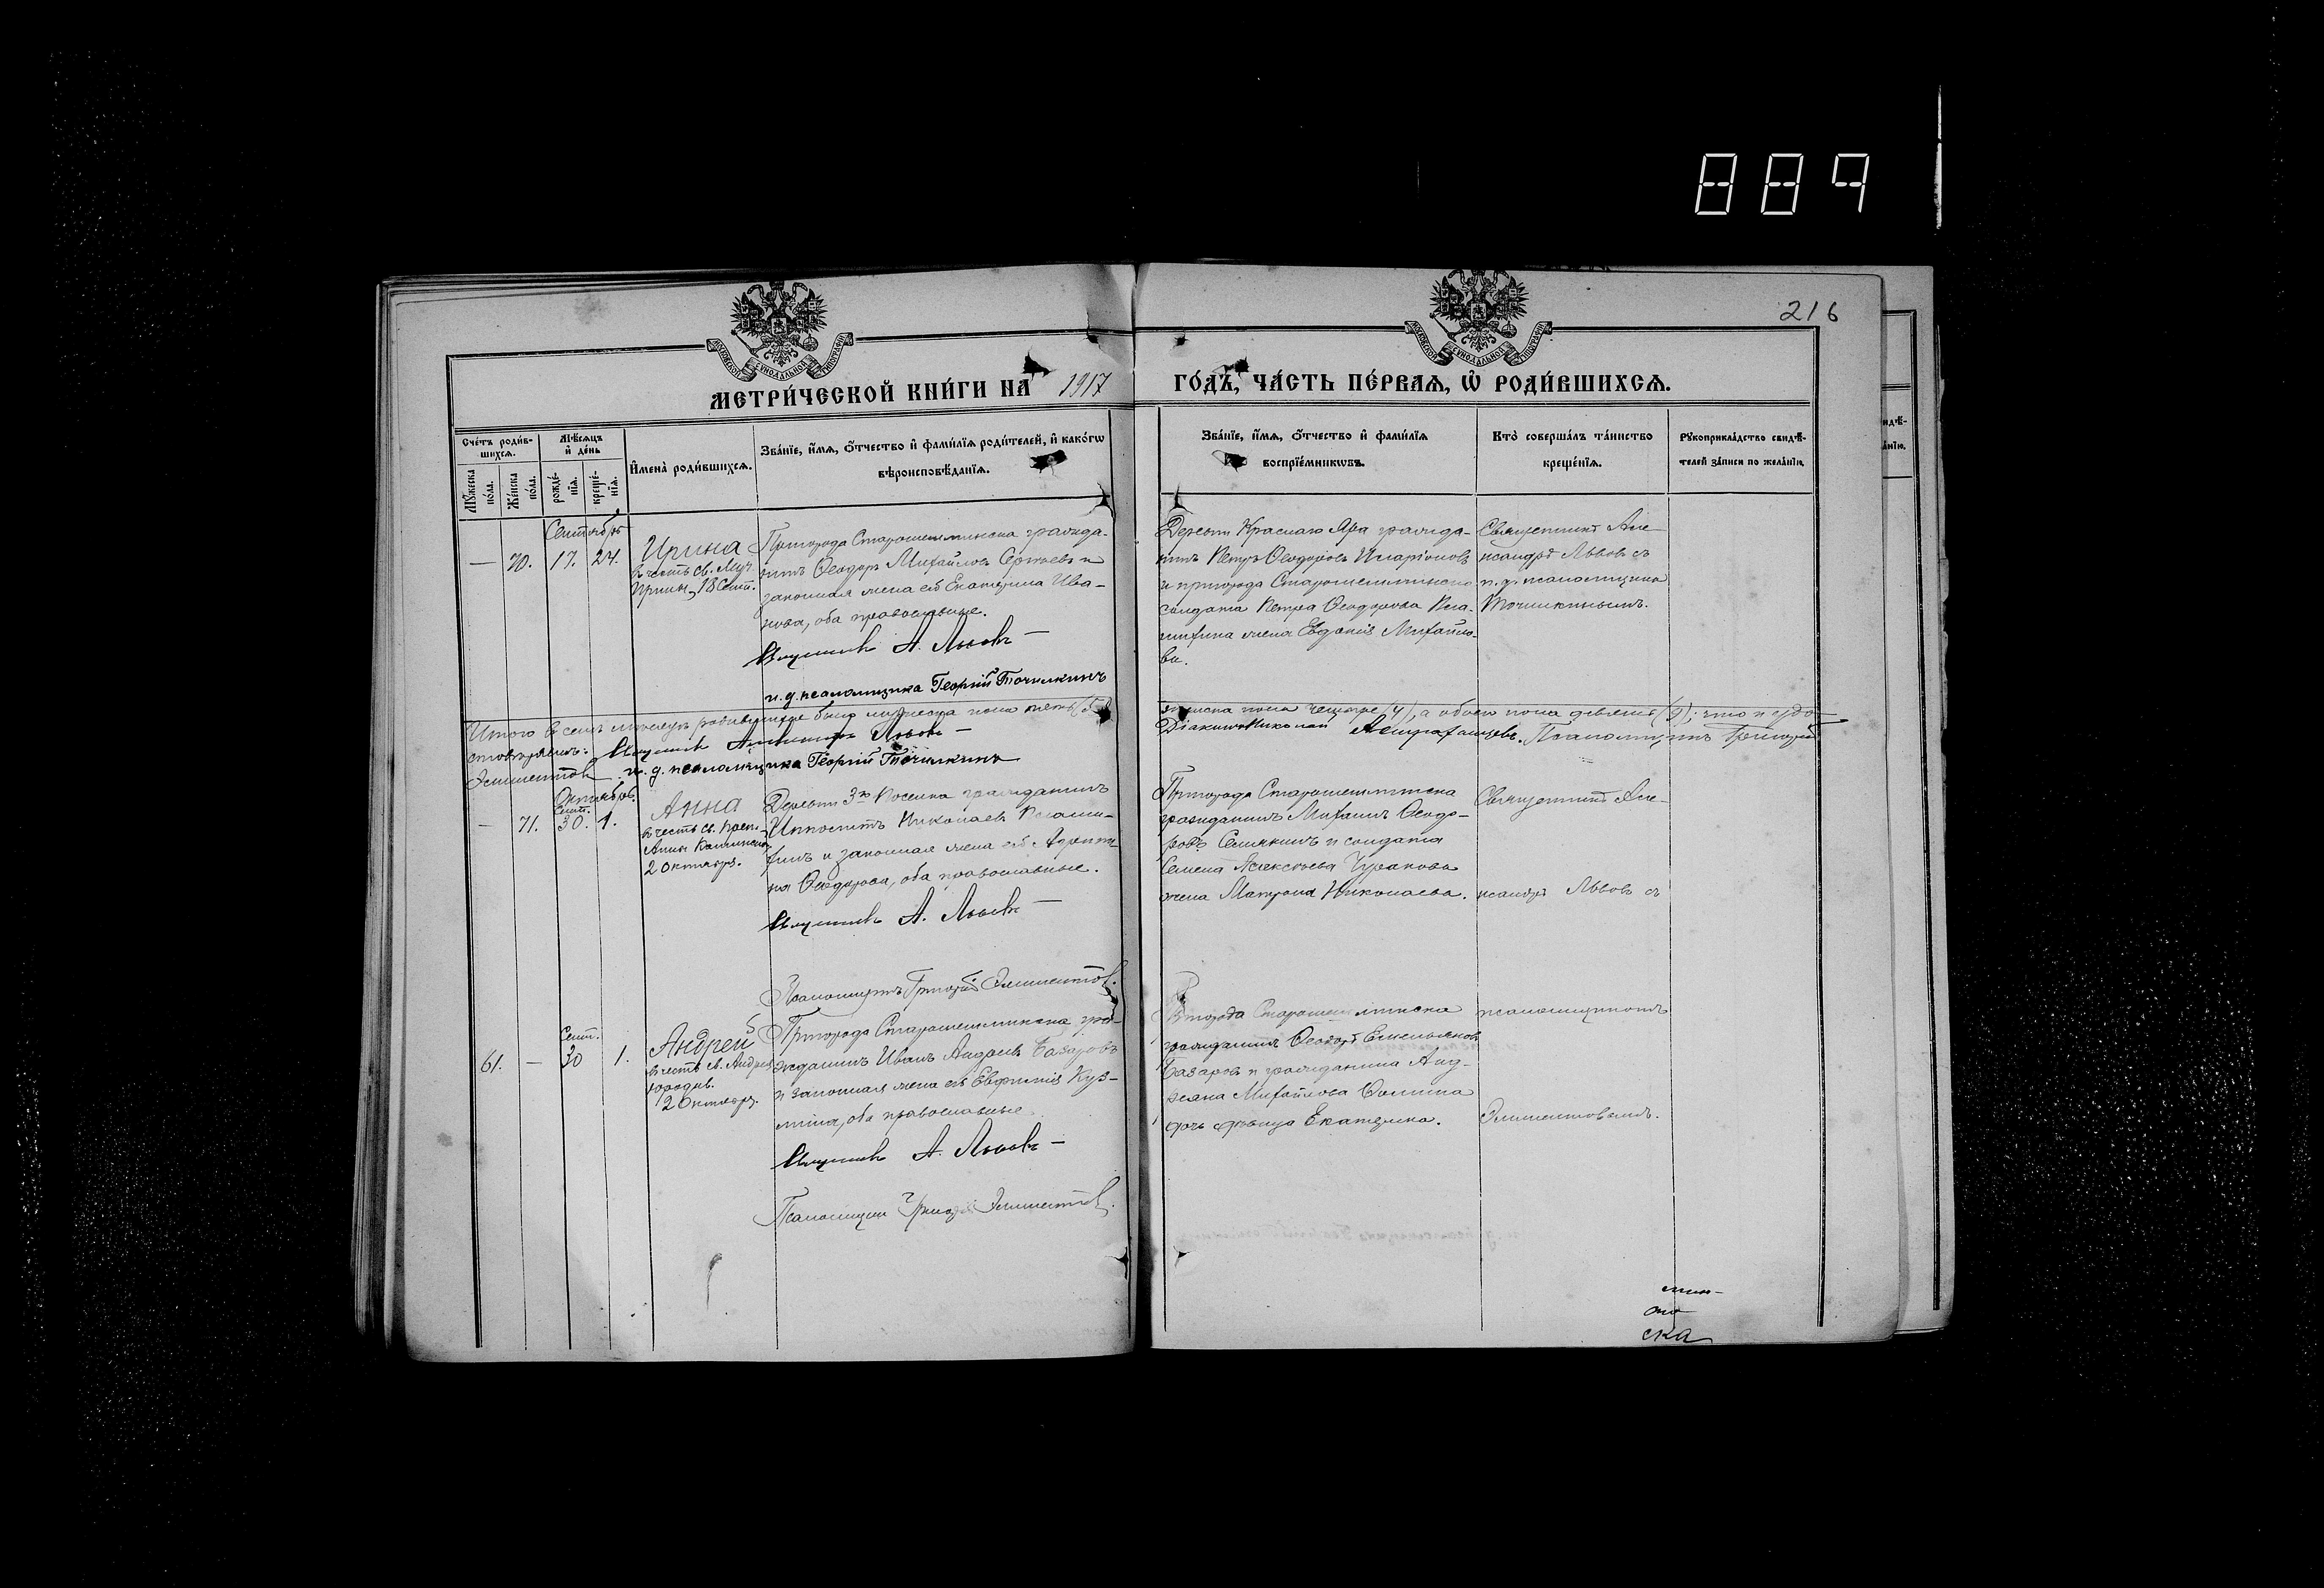 889
216
МЕТРИ́ЧЕСКОЙ КНИ́ГИ НА 1917 ГО́ДЪ, ЧА́СТЬ ПЕ́РВАѦ, Ѡ҆ РОДИ́ВШИХСѦ.
Сче́тъ роди́в-
шихсѧ.
Мꙋ́жеска
по́ла.
Же́нска
по́ла.
Мѣ́сѧцъ
и҆ де́нь
рожде́-
нїѧ.
креще́-
нїѧ.
И҆мена̀ роди́вшихсѧ.
Зва́нїе, и҆́мѧ, ѻ҆́тчество и҆ фами́лїѧ роди́телей, и҆ како́гѡ
вѣроисповѣ́данїѧ.
Зва́нїе, и҆́мѧ, ѻ҆́тчество и҆ фами́лїѧ
воспрїе́мникѡвъ.
Кто̀ соверша́лъ та́инство
креще́нїѧ.
Рꙋкоприкла́дство свидѣ́-
телей за́писи по жела́нїю.
Сентябрь
— 70. 17. 24.
Ирина
въ честь св. Муч.
Ирины, 18 Сент.
Пригорода Старошешминска гражда-
нинъ Ѳеодоръ Михайловъ Сергѣевъ и
законная жена его Екатерина Ива-
нова, оба православные.
Священникъ А. Львовъ
и. д. псаломщика Георгій Точилкинъ
Деревни Краснаго Яра гражда-
нинъ Петръ Ѳеодоровъ Иларіоновъ
и пригорода Старошешминска
солдата Петра Ѳеодорова
жена Евдокія Михайло-
ва.
Священникъ Але-
ксандръ Львовъ съ
и. д. псаломщика
Точилкинымъ.
Итого въ семъ мѣсяцѣ родившихся было мужеска пола пять (5)
женска пола четыре (4), а обоего пола девять (9); что и удо-
стовѣряемъ: Священникъ Александръ Львовъ
Діаконъ Николай Псаломщикъ Григорій
и. д. псаломщика Георгій Точилкинъ
Октябрь.
Сент.
— 71. 30. 1.
Анна
въ честь св. преп.
Анны Кашинской
2 Октября.
Деревни 3го Поселка гражданинъ
Ипполитъ Николаевъ
и законная жена его
Ѳеодорова, оба православные.
Священникъ А. Львовъ
Псаломщикъ Григорій
Пригорода Старошешминска
гражданинъ Михаилъ Ѳеодо-
ровъ и солдата
Семена Алексѣева
жена Матрона Николаева.
Священникъ Але-
ксандръ Львовъ съ
Сент.
61. — 30 1.
Андрей
въ честь св. Андрея
юродив.
2 Октября.
Пригорода Старошешминска гра-
жданинъ Иванъ Базаровъ
и законная жена его Евфимія Кузь-
мина, оба православные
Священникъ А. Львовъ
Псаломщикъ Григорій
Пригорода Старошешминска
гражданинъ Ѳеодоръ Емельяновъ
Базаровъ и гражданина Анд-
Михайлова Ѳомина
дочь дѣвица Екатерина.
псаломщикомъ
ска